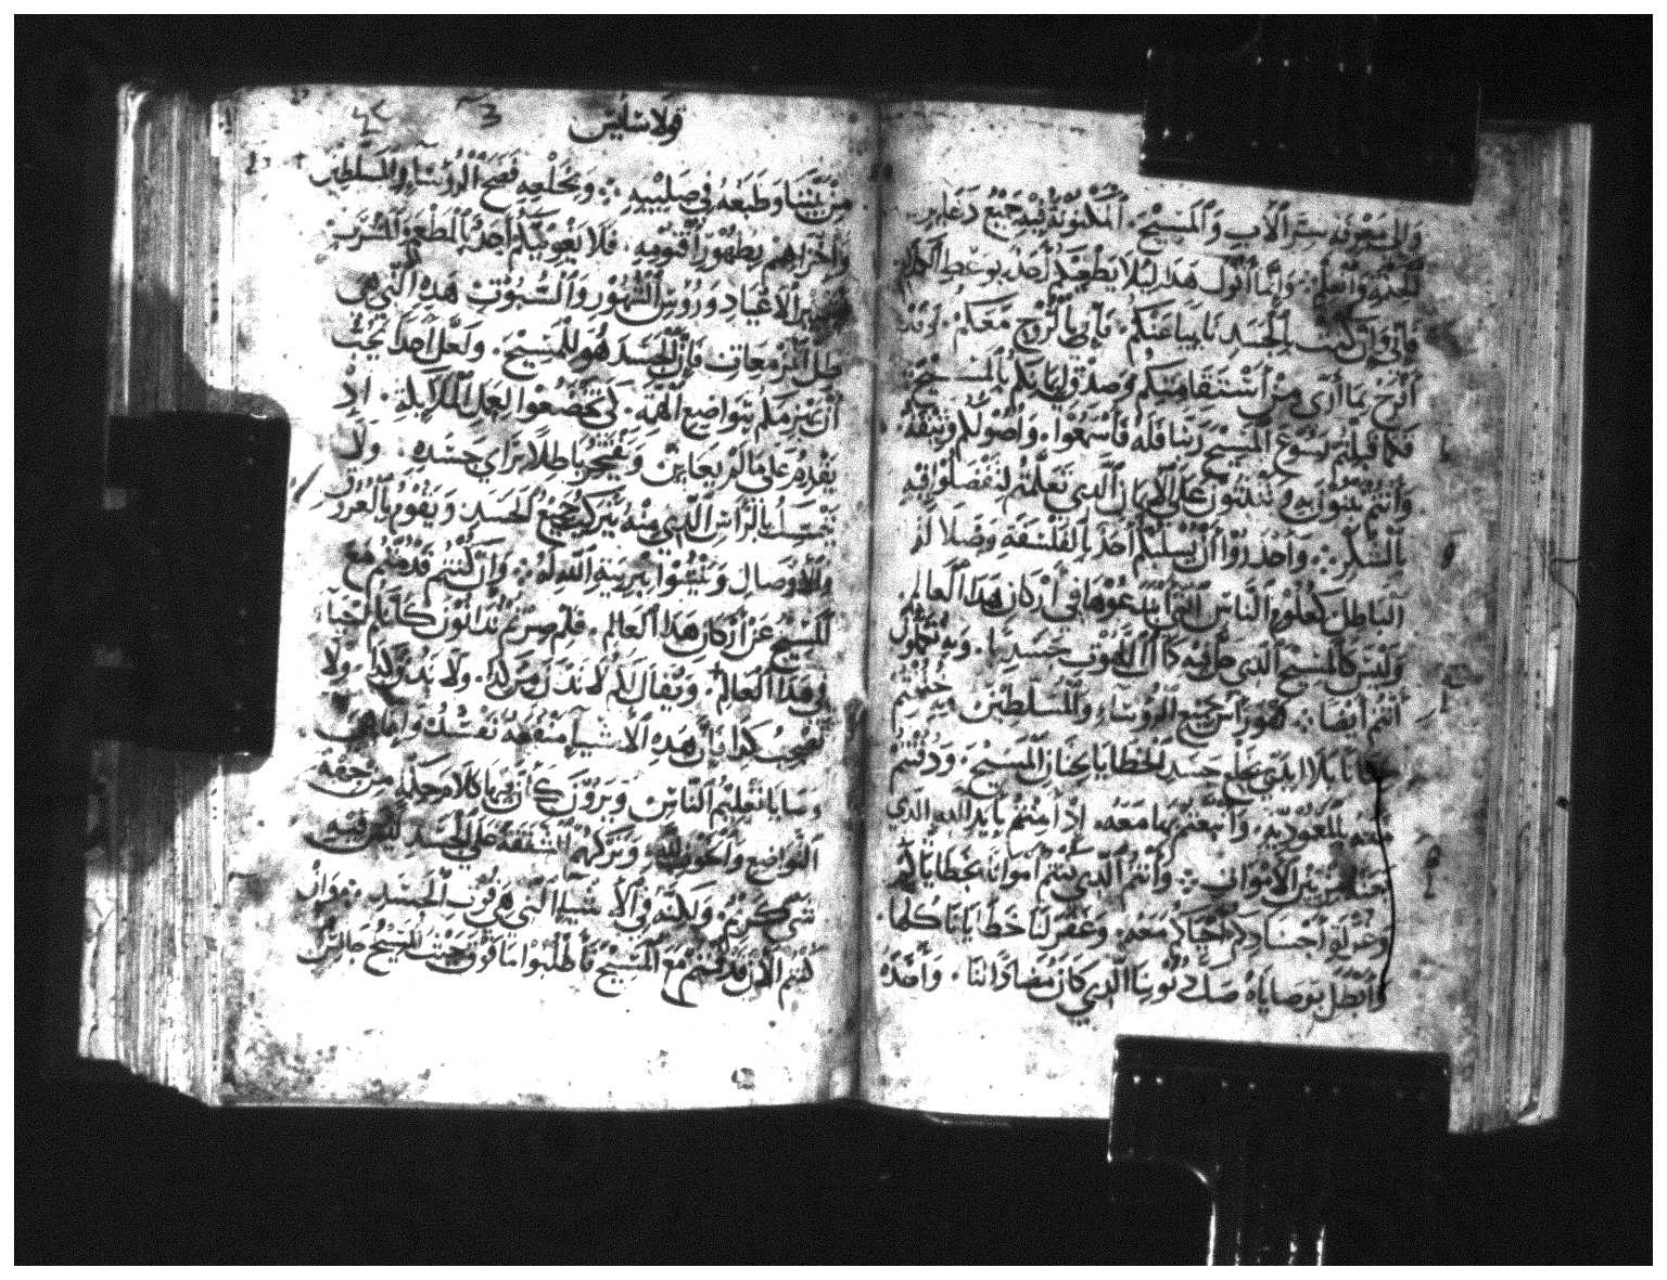 والى معرفة ستر الآب والمسيح. المكنونة فيه جميع دخاير
الحكمة والعلم. وانما اقول هذا ليلا يطغيكم احد بوعظ الكلام
فاني وان كنت بالجسد نايبا عنكم. فاني بالروح معكم. وقد
افرح بما ارى من استقامتكم وصدق ايمانكم بالمسيح.
فكما قبلتم يسوع المسيح ربنا فله فاسعوا. واصولكم وثيقة
وانتم تبنون به وتثبتون على الايمان الذي تعلمتم لتفضلوا فيه
بالشكر. واحذروا ان يسلبكم احد بالفلسفة وضلالة
الباطل كعلوم الناس التي في اركان هذا العالم
وليس كالمسيح الذي حل فيه كمال اللاهوت جسديا. وبه تكملون
انتم ايضا. فهو راس جميع الروساء والمسلطين وبه ختنتم
ختانا بلا ايدي بخلع جسد الخطايا بختان المسيح. ودفنتم
معه بالمعمودية. وانبعثتم بها معه. اذ امنتم بايد الله الذي
بعثه من بين الاموات. وانتم الذين كنتم امواتا بخطاياكم
وغرلة اجسادكم احياكم معه. وغفر لنا خطايانا كلها
وابطل بوصاياه صك ديوننا الذي كان مضادا لنا. واخذه
قولاسايس
من بيننا وطبعه في صليبه. وبخلعه فضح الروسا والمسلطين
واخزاهم بظهور اقنومه. فلا يغوينكم احد بالمطعم والمشرب
وتمييز الاعياد ورؤس الشهور والسبوت هذه التي هي
ظل المزمعات فان الجسد هو للمسيح. ولعل احدا يحب
ان يهزمكم بتواضع الهمة. لكي تخضعوا لعمل الملايكة. اذ
يقدم على ما لم يعاين ويفتخر باطلا براي جسده. ولا
يتمسك بالراس الذي منه يتركب جميع الجسد ويقوم بالعروق
والاوصال وينشوا بتربية الله له. وان كنتم قد متم مع
المسيح عن اركان هذا العالم. فلم صرتم تدانون كانكم احياء
في هذا العالم. ويقال لكم لا تدن من كذا. ولا تذق كذا. ولا
تصب كذا فان هذه الاشياء منفعة تفسد وانما هي
وصايا وتعليم الناس ويرون كان فيها كلام حكمة من جهة
التواضع والخوف لله وتركهم الشفقة على الجسد ليس فيه
شي كريم. ولكنه في الاشياء التي هي قرب الجسد. وان
كنتم الان قد قمتم مع المسيح فاطلبوا ما فوق حيث المسيح جالس